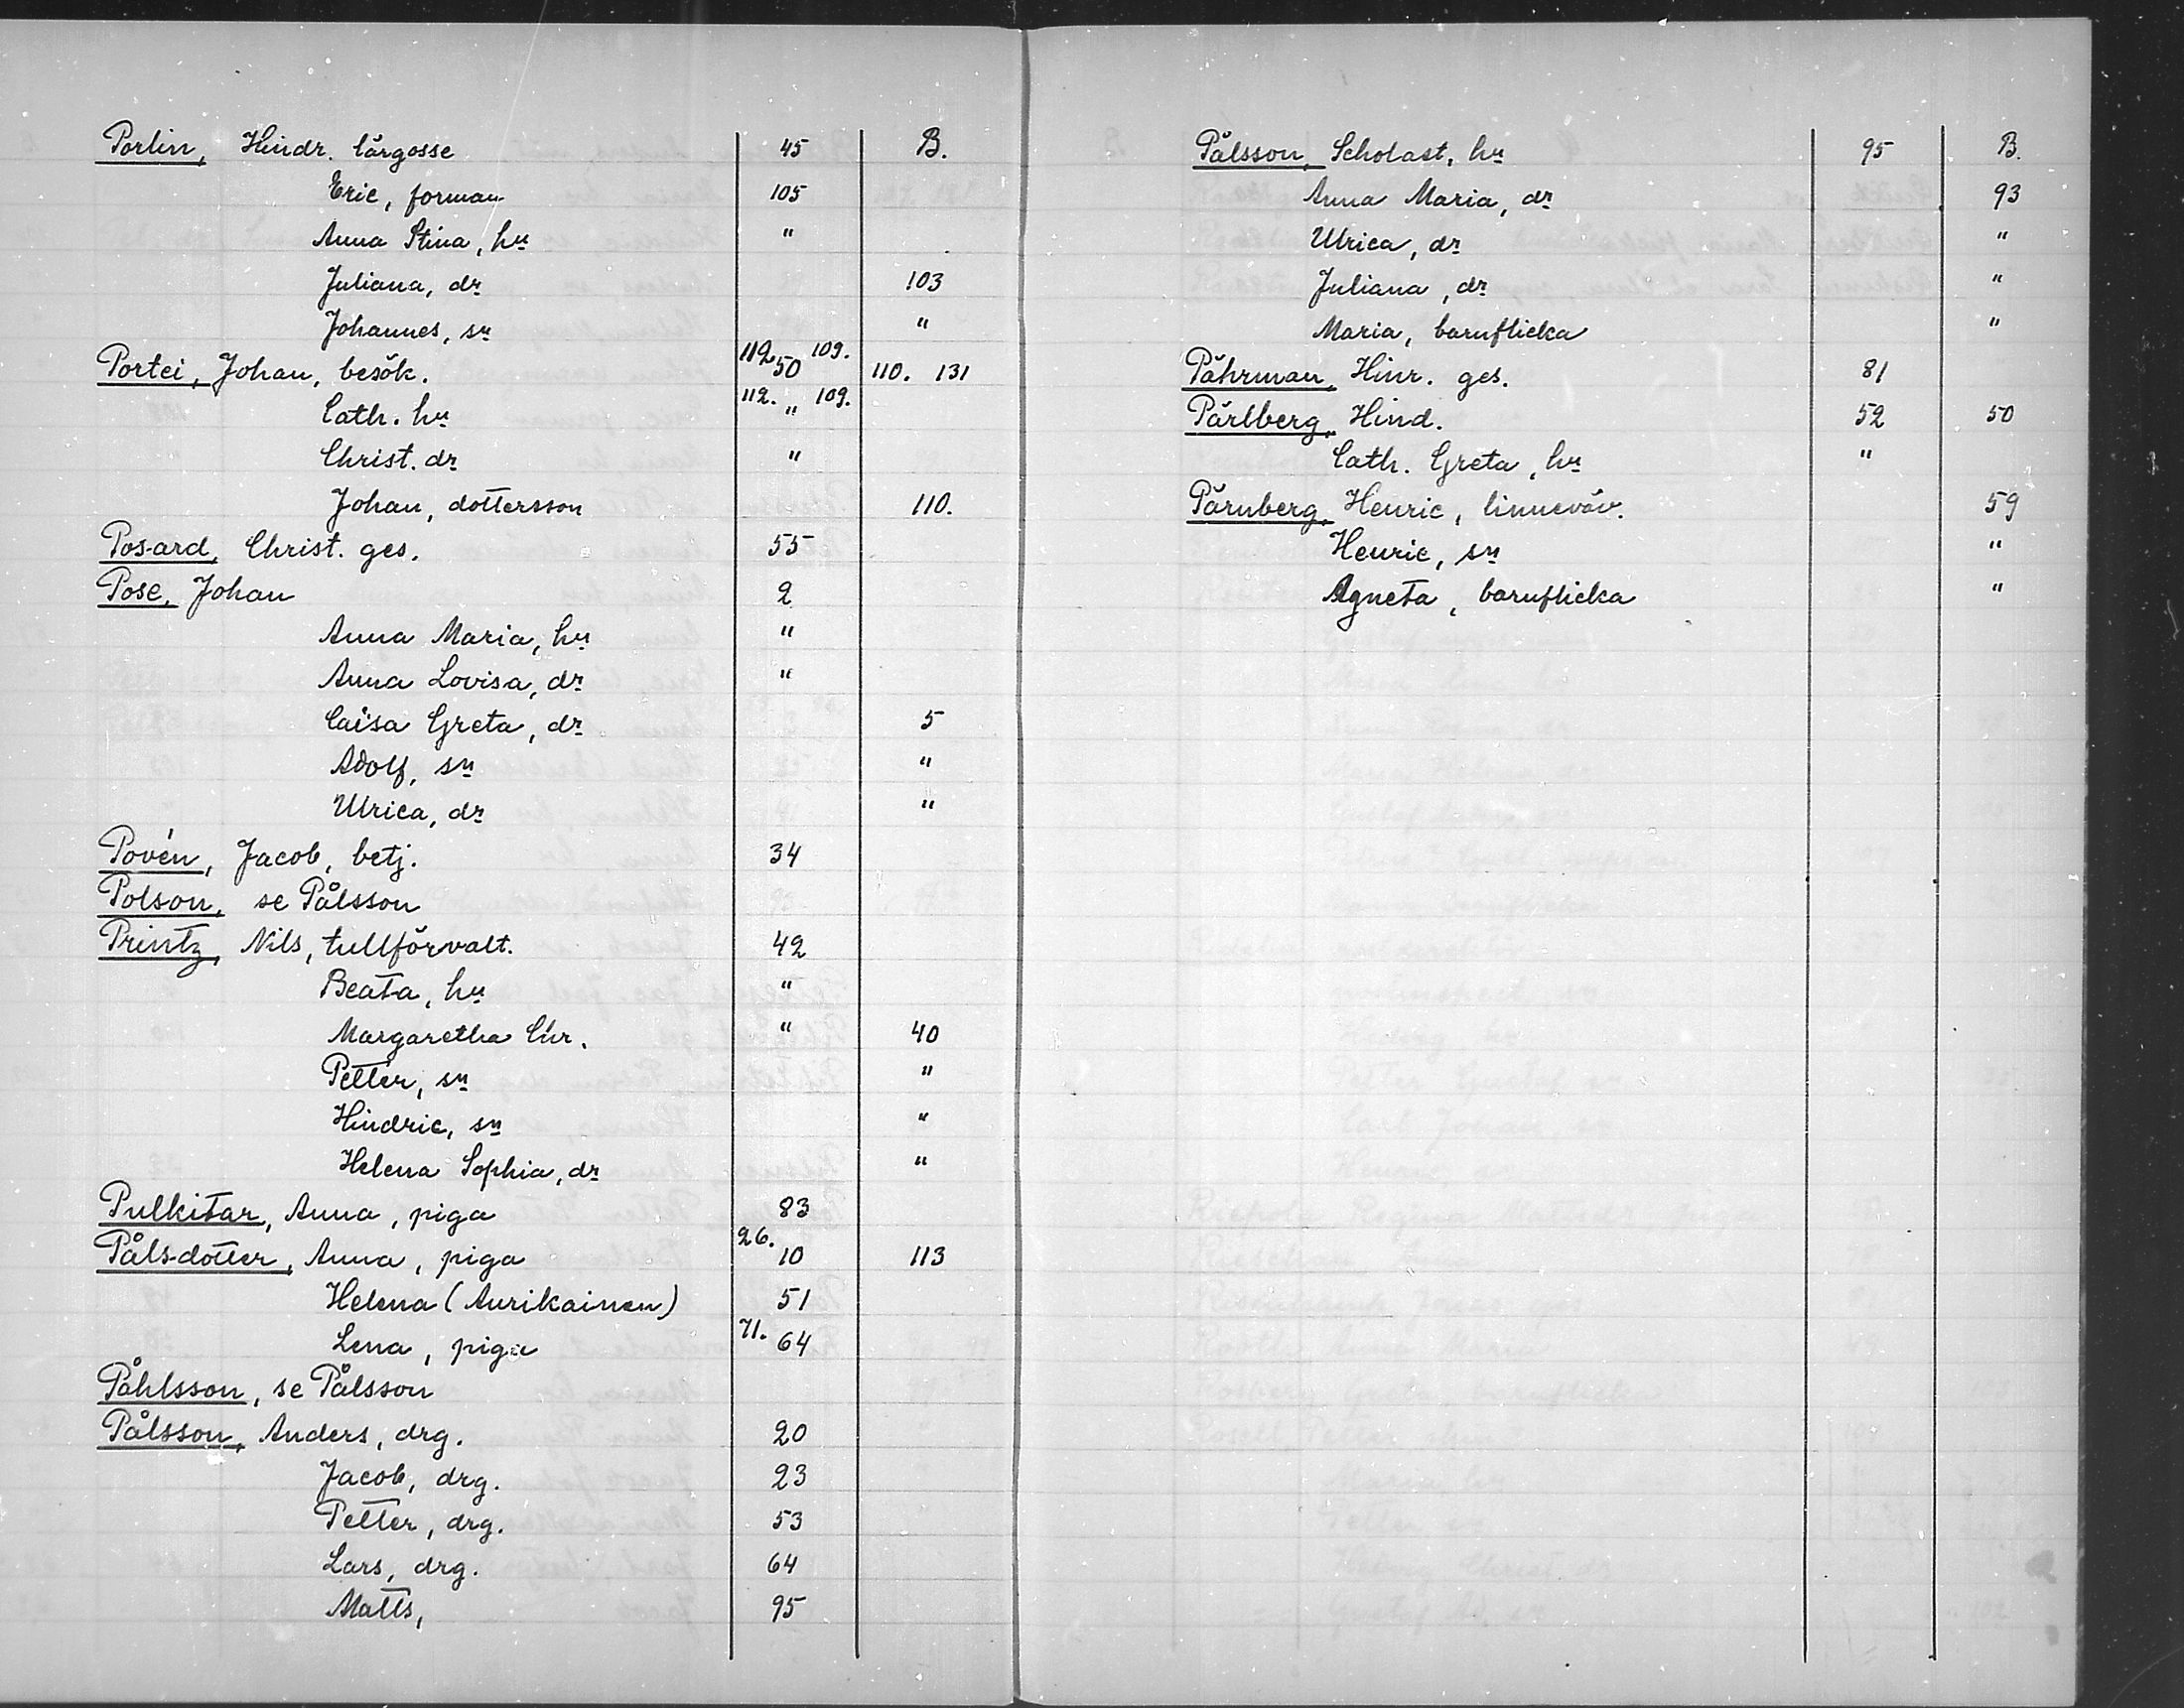 Porlin, Hindr. lärgosse 45 B.
Eric, forman 105
Anna Stina, hu "
Juliana, dr 103
Johannes, sn "
Portei, Johan, besök. 112. 50 109. 110. 131
Cath. hu 112. " 109.
Christ. dr "
Johan, dottersson 110.
Pos-ard, Christ. ges. 55
Pose, Johan 2
Anna Maria, hu "
Anna Lovisa, dr "
Caisa Greta, dr 5
Adolf, sn "
Ulrica, dr "
Povén, Jacob, betj. 34
Polson, se Pålsson
Printz, Nils, tullförvalt. 42
Beata, hu "
Margaretha Chr. " 40
Petter, sn "
Hindric, sn "
Helena Sophia, dr "
Pulkitar, Anna, piga 83
Påls-dotter, Anna, piga 26. 10 113
Helena (Aurikainen) 51
Lena, piga 71. 64
Påhlsson, se Pålsson
Pålsson, Anders, drg. 20
Jacob, drg. 23
Petter, drg. 53
Lars, drg. 64
Matts, 95
Pålsson, Scholast, hu 95 B.
Anna Maria, dr 93
Ulrica, dr "
Juliana, dr "
Maria, barnflicka "
Påhrman, Hinr. ges. 81
Pärlberg, Hind. 52 50
Cath. Greta, hu "
Pärnberg, Henric, linneväv. 59
Henric, sn "
Agneta, barnflicka "